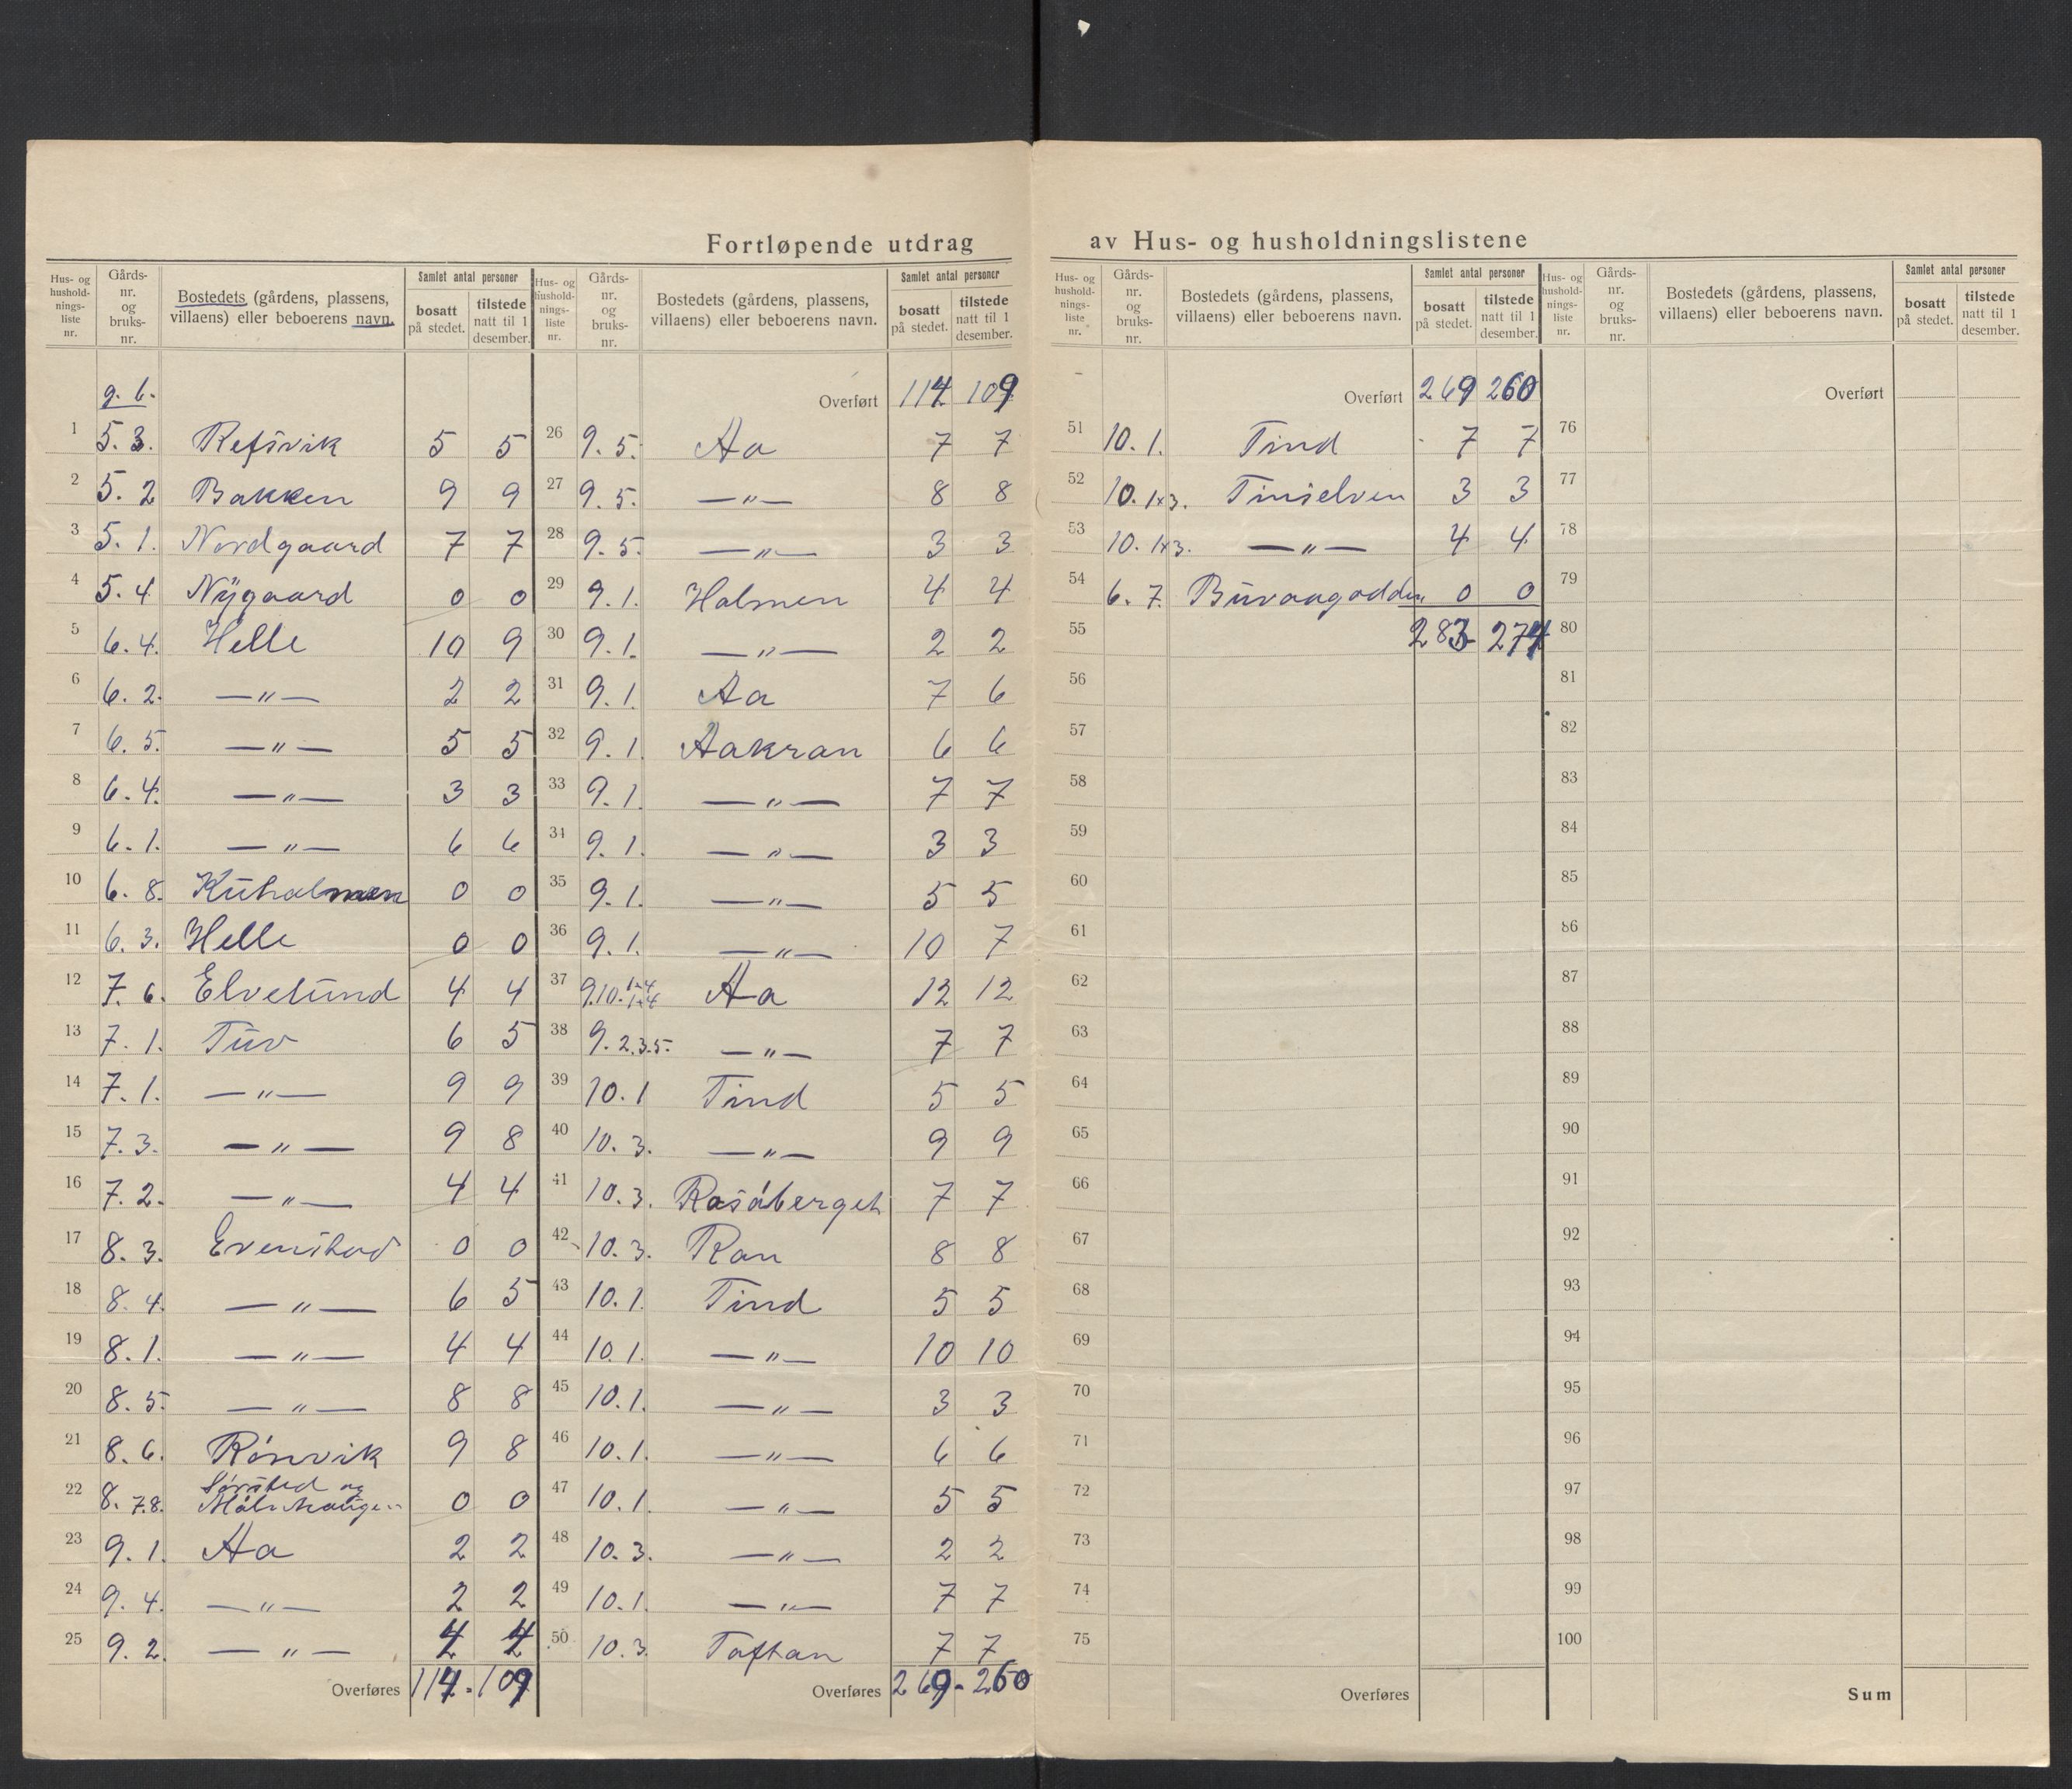 Fortløpende utdrag av Hus- og husholdningslistene
Hus- og husholdnings-liste nr. | Gårds-nr. og bruks-nr. | Bostedets (gårdens, plassens, villaens) eller beboerens navn. | Samlet antal personer bosatt på stedet. | tilstede natt til 1 desember.
g. b.
1 5. 3. Refsvik 5 5
2 5. 2 Bakken 9 9
3 5. 1. Nordgaard 7 7
4 5. 4 Nygaard 0 0
5 6. 4. Helle 10 9
6 6. 2. —"— 2 2
7 6. 5. —"— 5 5
8 6. 4. —"— 3 3
9 6. 1. —"— 6 6
10 6. 8. Kuholmen 0 0
11 6. 3. Helle 0 0
12 7. 6. Elvelund 4 4
13 7. 1. Tuv 6 5
14 7. 1. —"— 9 9
15 7. 3. —"— 9 8
16 7. 2. —"— 4 4
17 8. 3. Evenstad 0 0
18 8. 4. —"— 6 5
19 8. 1. —"— 4 4
20 8. 5. —"— 8 8
21 8. 6. Rónvik 9 8
22 8. 7.8. og 0 0
23 9. 1. Aa 2 2
24 9. 4. —"— 2 2
25 9. 2. —"— 4 4
Overføres 114 . 109
Hus- og husholdnings-liste nr. | Gårds-nr. og bruks-nr. | Bostedets (gårdens, plassens, villaens) eller beboerens navn. | Samlet antal personer bosatt på stedet. | tilstede natt til 1 desember.
Overført 114 109
26 9. 5. Aa 7 7
27 9. 5. —"— 8 8
28 9. 5. —"— 3 3
29 9. 1. Holmen 4 4
30 9. 1. —"— 2 2
31 9. 1. Aa 7 6
32 9. 1. Aakran 6 6
33 9. 1. —"— 7 7
34 9. 1. —"— 3 3
35 9. 1. —"— 5 5
36 9. 1. —"— 10 7
37 9.10. 1+4 1+4 Aa 12 12
38 9. 2.3.5. —"— 7 7
39 10. 1 Tind 5 5
40 10. 3. —"— 9 9
41 10. 3. Rasáberget 7 7
42 10. 3. Ran 8 8
43 10. 1. Tind 5 5
44 10. 1. —"— 10 10
45 10. 1. —"— 3 3
46 10. 1. —"— 6 6
47 10. 1. —"— 5 5
48 10. 3. —"— 2 2
49 10. 1. —"— 7 7
50 10. 3. Toftan 7 7
Overføres 269 - 260
Hus- og husholdnings-liste nr. | Gårds-nr. og bruks-nr. | Bostedets (gårdens, plassens, villaens) eller beboerens navn. | Samlet antal personer bosatt på stedet. | tilstede natt til 1 desember.
Overført 269 260
51 10. 1. Tind 7 7
52 10. 1+3. Tinielven 3 3
53 10. 1+3. —"— 4 4
54 6. 7. Buvaagodden 0 0
55 283 - 274
56
57
58
59
60
61
62
63
64
65
66
67
68
69
70
71
72
73
74
75
Overføres
Hus- og husholdnings-liste nr. | Gårds-nr. og bruks-nr. | Bostedets (gårdens, plassens, villaens) eller beboerens navn. | Samlet antal personer bosatt på stedet. | tilstede natt til 1 desember.
Overført
76
77
78
79
80
81
82
83
84
85
86
87
88
89
90
91
92
93
94
95
96
97
98
99
100
Sum